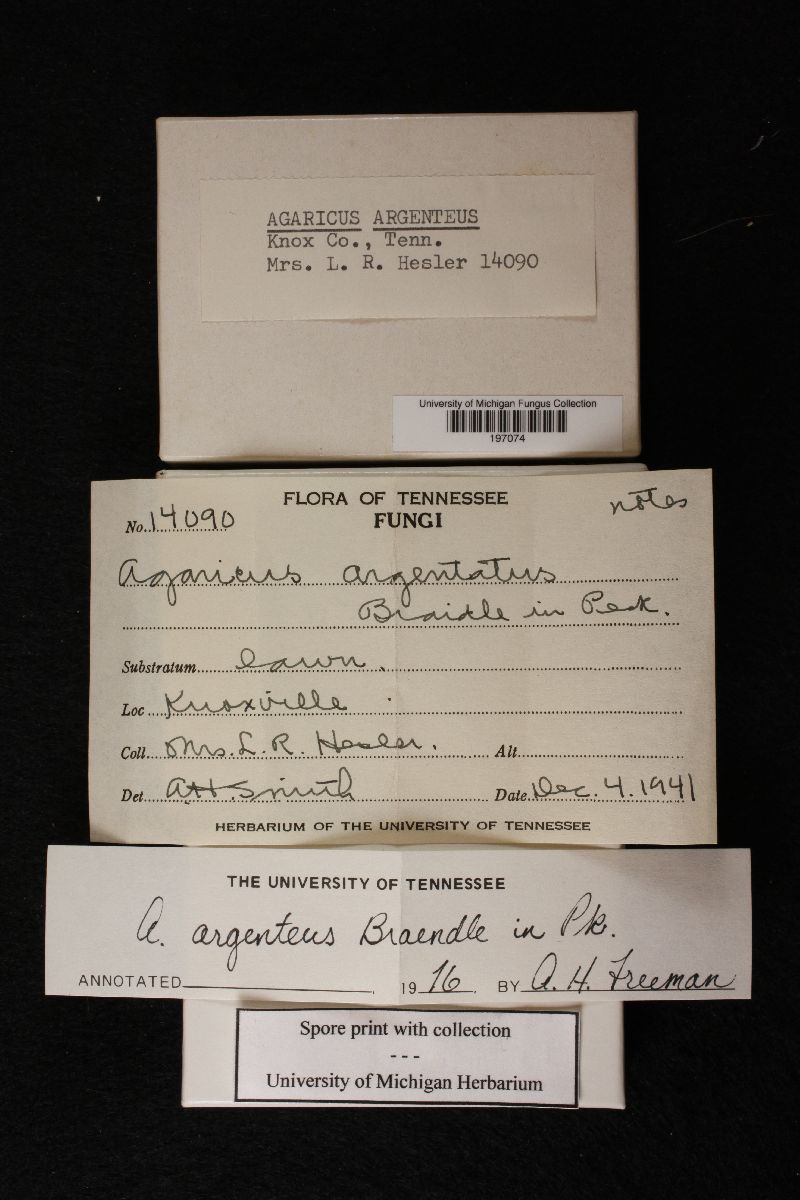 AGARICUS ARGENTEUS
Knox Co., Tenn.
Mrs. L. R. Hesler 14090
University of Michigan Fungus Collection
197074
FLORA OF TENNESSEE
notes
No. 14090
FUNGI
Agaricus argentatus
Braidle in Peck.
Substratum Lawn.
Loc Knoxville
Coll. Mrs. L. R. Hesler. Alt
Det. AH. Smith Date Dec. 4. 1941
HERBARIUM OF THE UNIVERSITY OF TENNESSEE
THE UNIVERSITY OF TENNESSEE
A. argenteus Braendle in Pk.
ANNOTATED 1976 BY A. H. Freeman
Spore print with collection
---
University of Michigan Herbarium